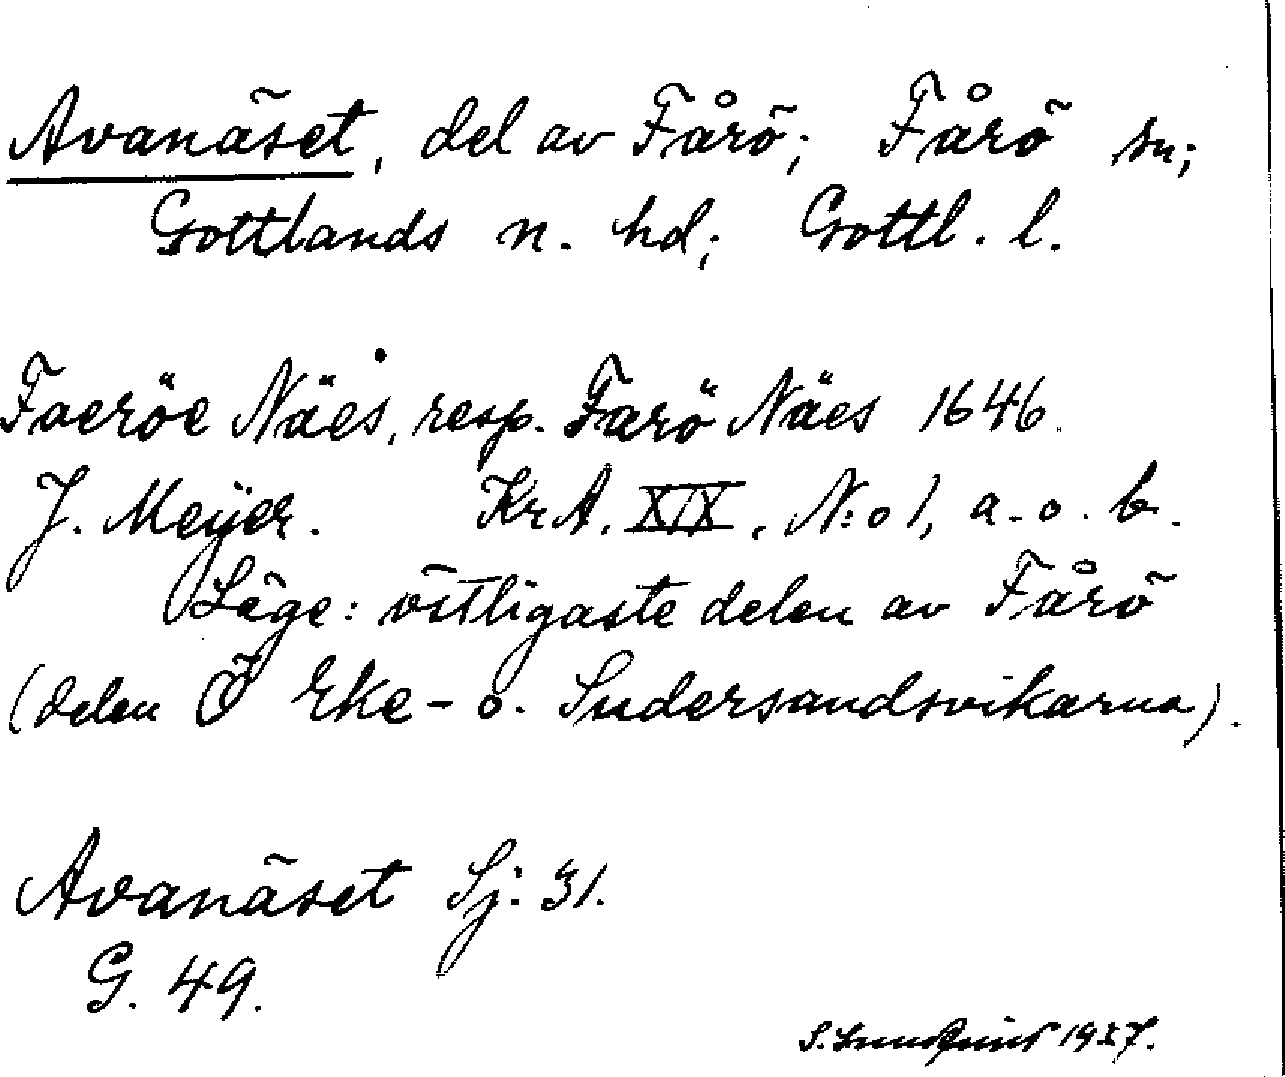 Avanäset, del av Fårö; Fårö sn;
Gottlands n. hd; Gottl. l.
Faeröe Näes, resp. Farö Näes 1646.
J. Meÿer. KrA. XIX, N:o 1, a. o. b.
Läge: östligaste delen av Fårö
(delen Ö Eke- o. Sudersandsvikarna).
Avanäset Sj: 31.
G. 49.
S. 19